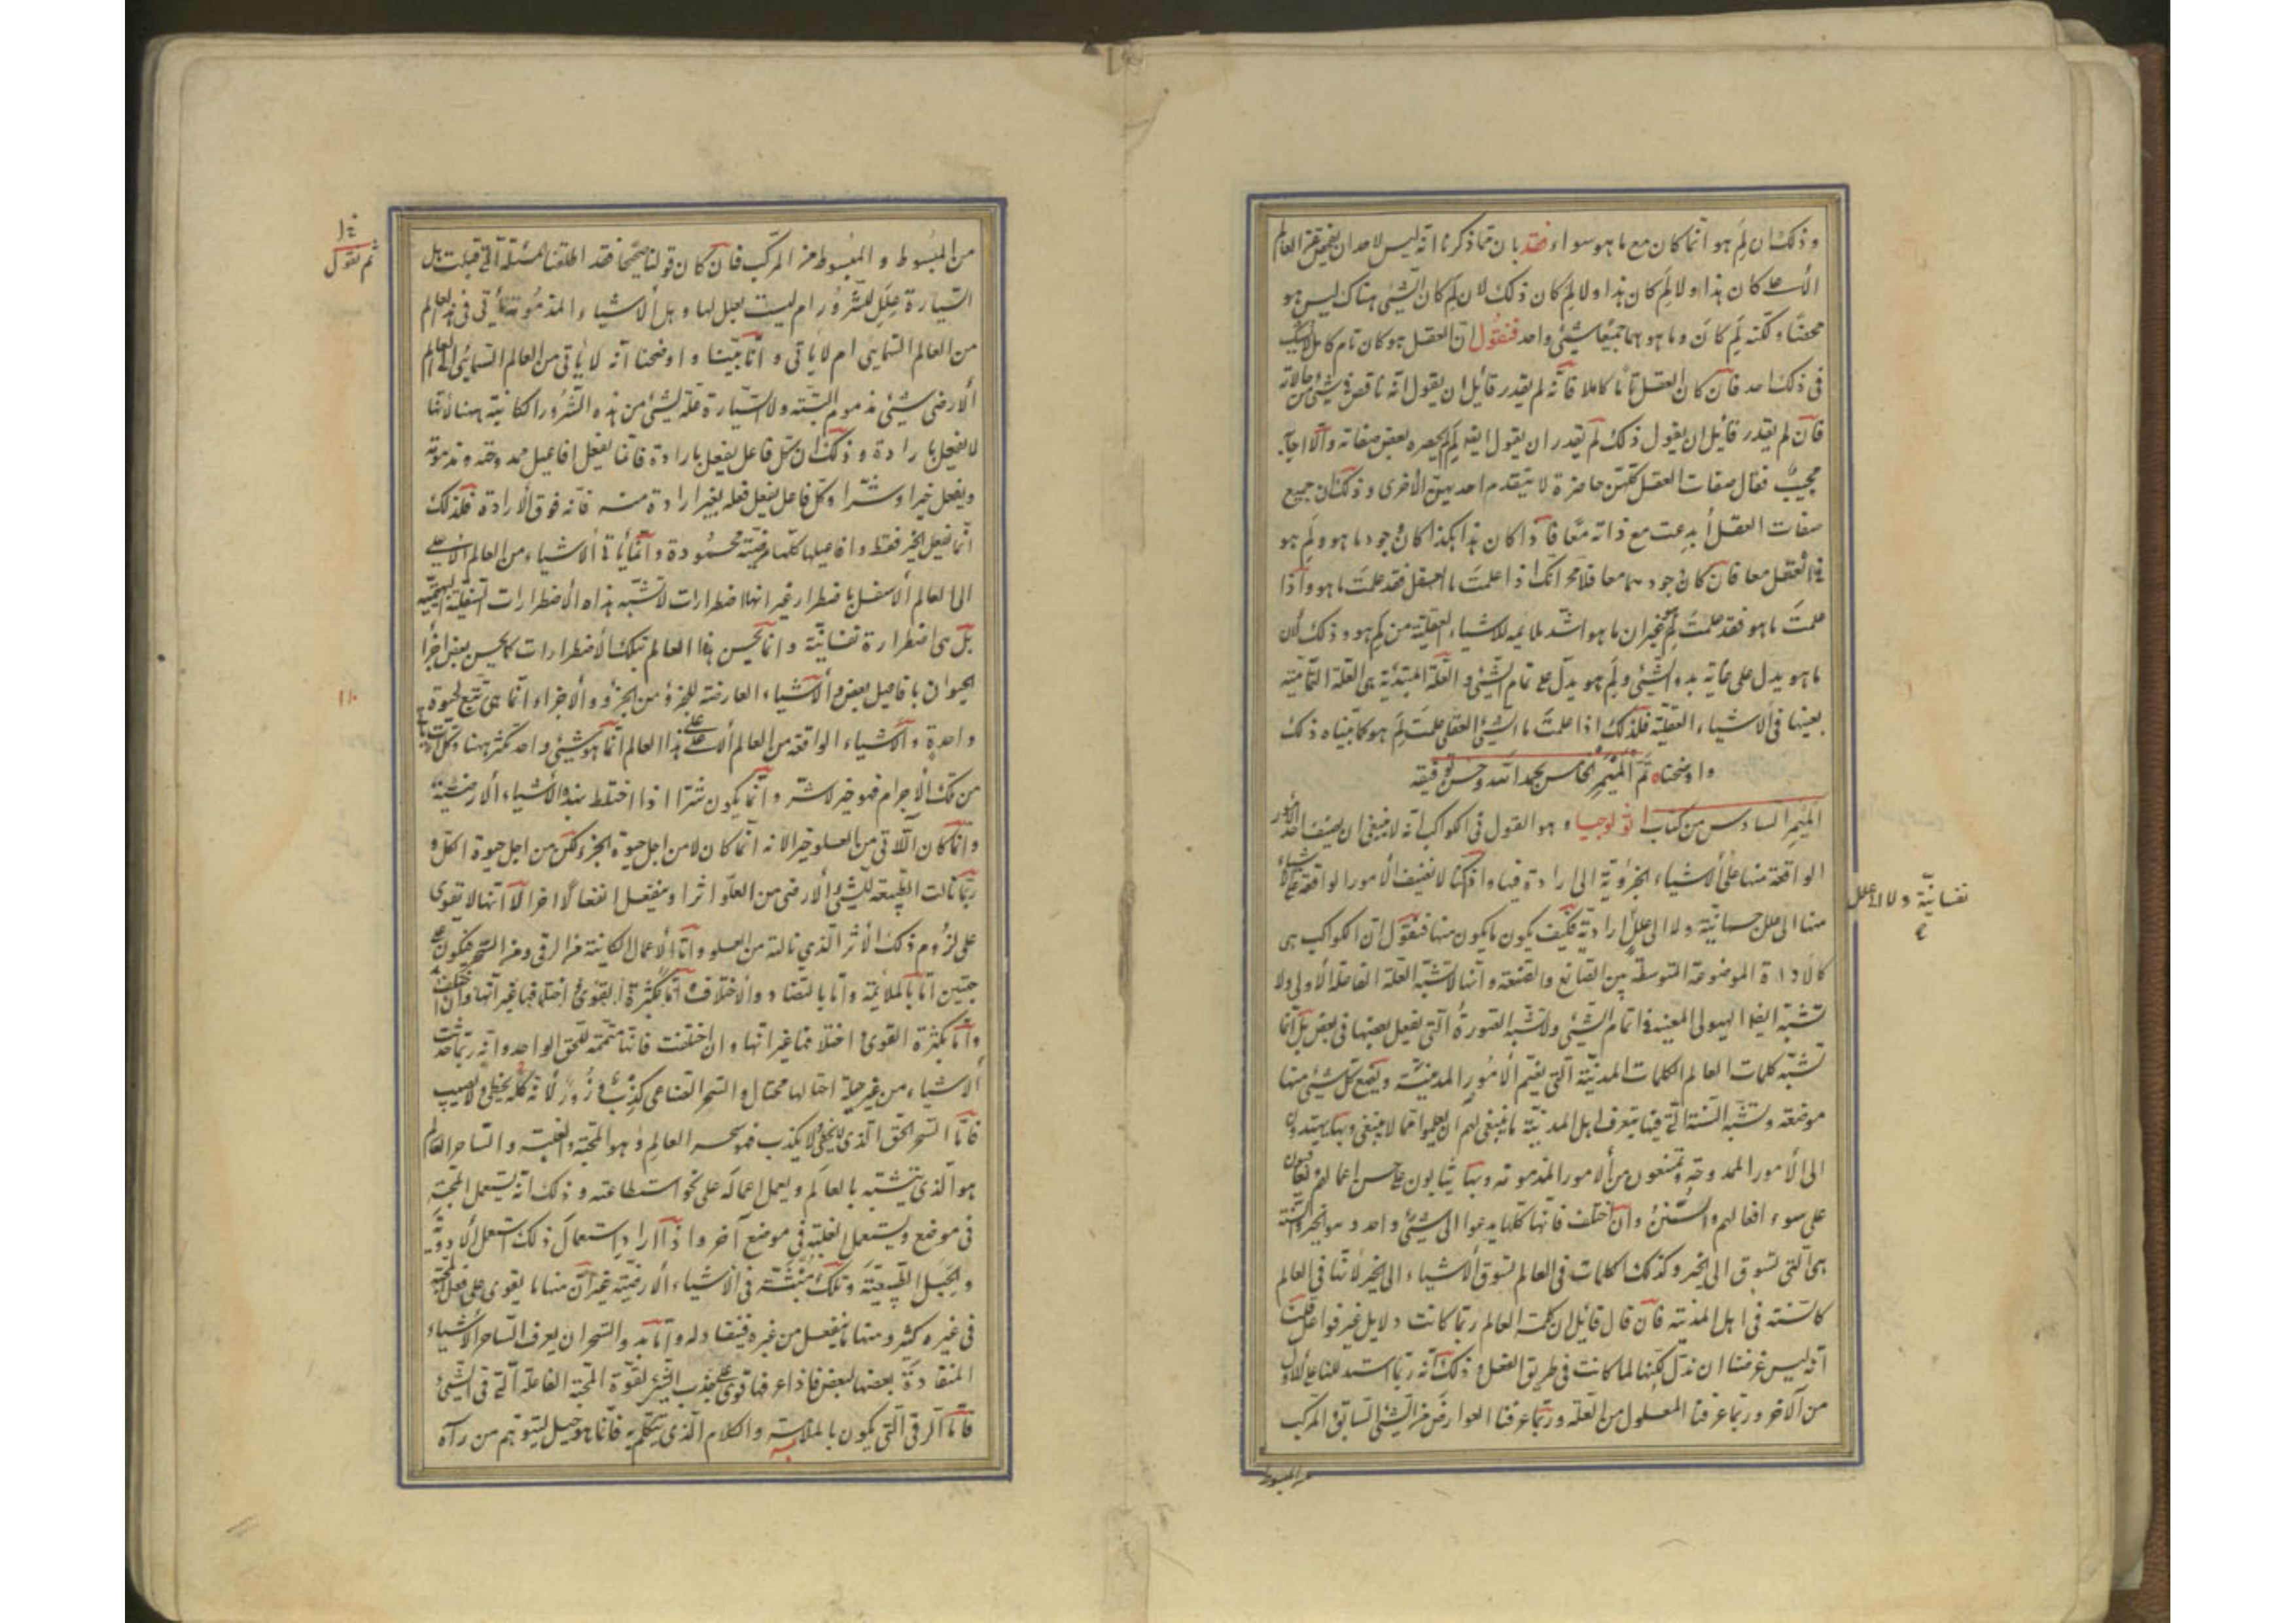 وذلك ان لم هو انما كان مع ما هو سواء فقد بان مما ذكرنا انه ليس لاحد ان يفحص عن العالم
الاعلى كان هذا ولا لم كان هذا ولا لم كان ذلك لان لم كان الشئ هناك ليس هو
ولكنه لم كان وما هو هما جميعا شئ واحد فنقول ان العقل هو كان تام كامل لا يشك
فى ذلك احد فان كان العقل تاما كاملا فانه لم يقدر قائل ان يقول انه ناقص فى شئ من حالاته
فان لم يقدر قائل ان يقول ذلك لم يقدر ان يقول ايضا لم لم يحضره بعض صفاته والا اجابه
مجيب فقال صفات العقل كلهن حاضرة لا يتقدم احديهن الأخرى وذلك ان جميع
صفات العقل أبدعت مع ذاته معا فاذا كان هذا هكذا كان وجود ما هو ولم هو
فى العقل معا فان كان وجودهما معا فلا محالة انك اذا علمت ما العقل فقد علمت ما هو واذا
علمت ما هو فقد علمت لم هو غير ان ما هو اشد ملائمه للاشياء العقلية من لم هو وذلك لان
ما هو يدل على غاية بدء الشئ ولم هو يدل على تمام الشئ والعلة المبتدئة هى العلة التمامية
بعينها فى الاشياء العقلية فلذلك اذا علمت ما الشئ العقلى علمت لم هو كما بيناه ذلك
واوضحناه تم الميمر الخامس بحمد الله وحسن توفيقه
الميمر السادس من كتاب اثولوجيا وهو القول فى الكواكب انه لا ينبغى ان يضيف احد الأمور
الواقعة منها على الاشياء الجزؤية الى ارادة فيها واذا كنا لا نضيف الأمور الواقعة على الاشياء
منها الى علل جسمانية ولا الى علل ارادية فكيف يكون ما يكون منها فنقول ان الكواكب هى
نفسانية ولا الى علل
كالاداة الموضوعة المتوسطة بين الصانع والصنعة وانها لا تشبه العلة الفاعلة الأولى ولا
تشبه ايضا الهيولى المعينة فى اتمام الشئ ولا تشبه الصورة التى تفعل بعضها فى بعض بل انما
تشبه كلمات العالم الكلمات المدنية التى تضم الأمور المدينية وتضع كل شئ منها
موضعه وتشبه السنة التى فيها يتعرف اهل المدينة ما ينبغى لهم ان يعملوا مما لا ينبغى وبها يهتدون
الى الأمور الممدوحة ويمتنعون من الأمور المذمومة وبها يثابون على حسن اعمالهم ويعاقبون
على سوء افعالهم والسنن وان اختلف فانها كلها يدعوا الى شئ واحد وهو الخير والسنة
هى التى تسوق الى الخير وكذلك الكلمات فى العالم تسوق الأشياء الى الخير لأنها فى العالم
كالسنة فى اهل المدينة فان قال قائل ان كلمة العالم ربما كانت دلايل غير فواعل قلنا
انه ليس غرضنا ان ندل لكنها لما كانت فى طريق الفعل وذلك انه ربما استدللنا على الأول
من الآخر وربما عرفنا المعلول من العلة وربما عرفنا العوارض من الشئ السابق المركب
من المبسوط
من المبسوط والمبسوط من المركب فان كان قولنا صحيحا فقد اطلقنا المسئلة التى قيلت هل
ثم نقول
السيارة علل للشرور ام ليست بعلل لها وهل الاشياء المذمومة تأتى فى هذا العالم
من العالم السمائى ام لا ياتى وانا بينا واوضحنا انه لا ياتى من العالم السمائى الى العالم
ألارضى شئ مذموم البتة ولا السيارة علة لشئ من هذه الشرور الكائنة ههنا لأنها
لا يفعل بارادة وذلك ان كل فاعل يفعل بارادة فانما يفعل افاعيل ممدوحة ومذمومة
ويفعل خيرا وشرا وكل فاعل يفعل فعله بغير ارادة منه فانه فوق الارادة فلذلك
انما يفعل الخير فقط وافاعيلها كلها مرضية محمودة وانما يأتى الأشياء من العالم الاعلى
الى العالم الأسفل باضطرار غير انها اضطرارات لا تشبه هذه الأضطرارات السفلية البهيمية
بل هى اضطرارة نفسانية وانما يحس هذا العالم بتلك الأضطرارات كما يحس بعض اجزأ
الحيوان بافاعيل بعض والأشياء العارضة للجزؤ من الجزؤ والأجزاء انما هى تبع لحيوة
واحدة والأشياء الواقعة من العالم الأعلى على هذا العالم انما هو شئ واحد يتكثر ههنا وكل آت يأتى
من تلك الأجرام فهو خير لا شر وانما يكون شرا اذا اختلط بهذه الأشياء الأرضية
وانما كان الآتى من العلو خيرا لانه انما كان لا من اجل حيوة الجزء لكن من اجل حيوة الكل و
ربما نالت الطبيعة للشئ الأرضى من العلو اثرا وينفعل انفعالا اخر الا انها لا تقوى
على لزوم ذلك الأثر الذى نالته من العلو واما الأعمال الكاينة من الرقى ومن السحر فيكون على
جهتين اما بالملائمة واما بالتضاد والأختلاف واما بكثرة القوى واختلافها غير انها وان اختلفت
واما بكثرة القوى واختلافها غير انها وان اختلفت فانها متممة للحى الواحد وانه ربما حدثت
ألاشياء من غير حيلة احتالها محتال والسحر الصناعى كذب وزور لأنه كله يخطى ولا يصيب
فاما السحر الحق الذى لا يخطى ولا يكذب فهو سحر العالم وهو المحبة والغلبة والساحر العالم
هو الذى يتشبه بالعالم ويعمل اعماله على نحو استطاعته وذلك انه يستعمل المحبة
فى موضع ويستعمل الغلبة فى موضع آخر واذا اراد استعمال ذلك استعمل الأدوية
والحيل الطبيعية وتلك منبثة فى الأشياء الأرضية غير ان منها ما يقوى على فعل المحبة
فى غيره كثير ومنها ما ينفعل من غيره فينقاد له وانما بدو السحر ان يعرف الساحر الأشياء
المنقادة بعضها لبعض فاذا عرفها قوى على جذب الشئ لقوة المحبة الفاعلة التى فى الشئ
فاما الرقى التى يكون بالملامسة والكلام الذى يتكلم به فانما هو حيل ليتوهم من رآه